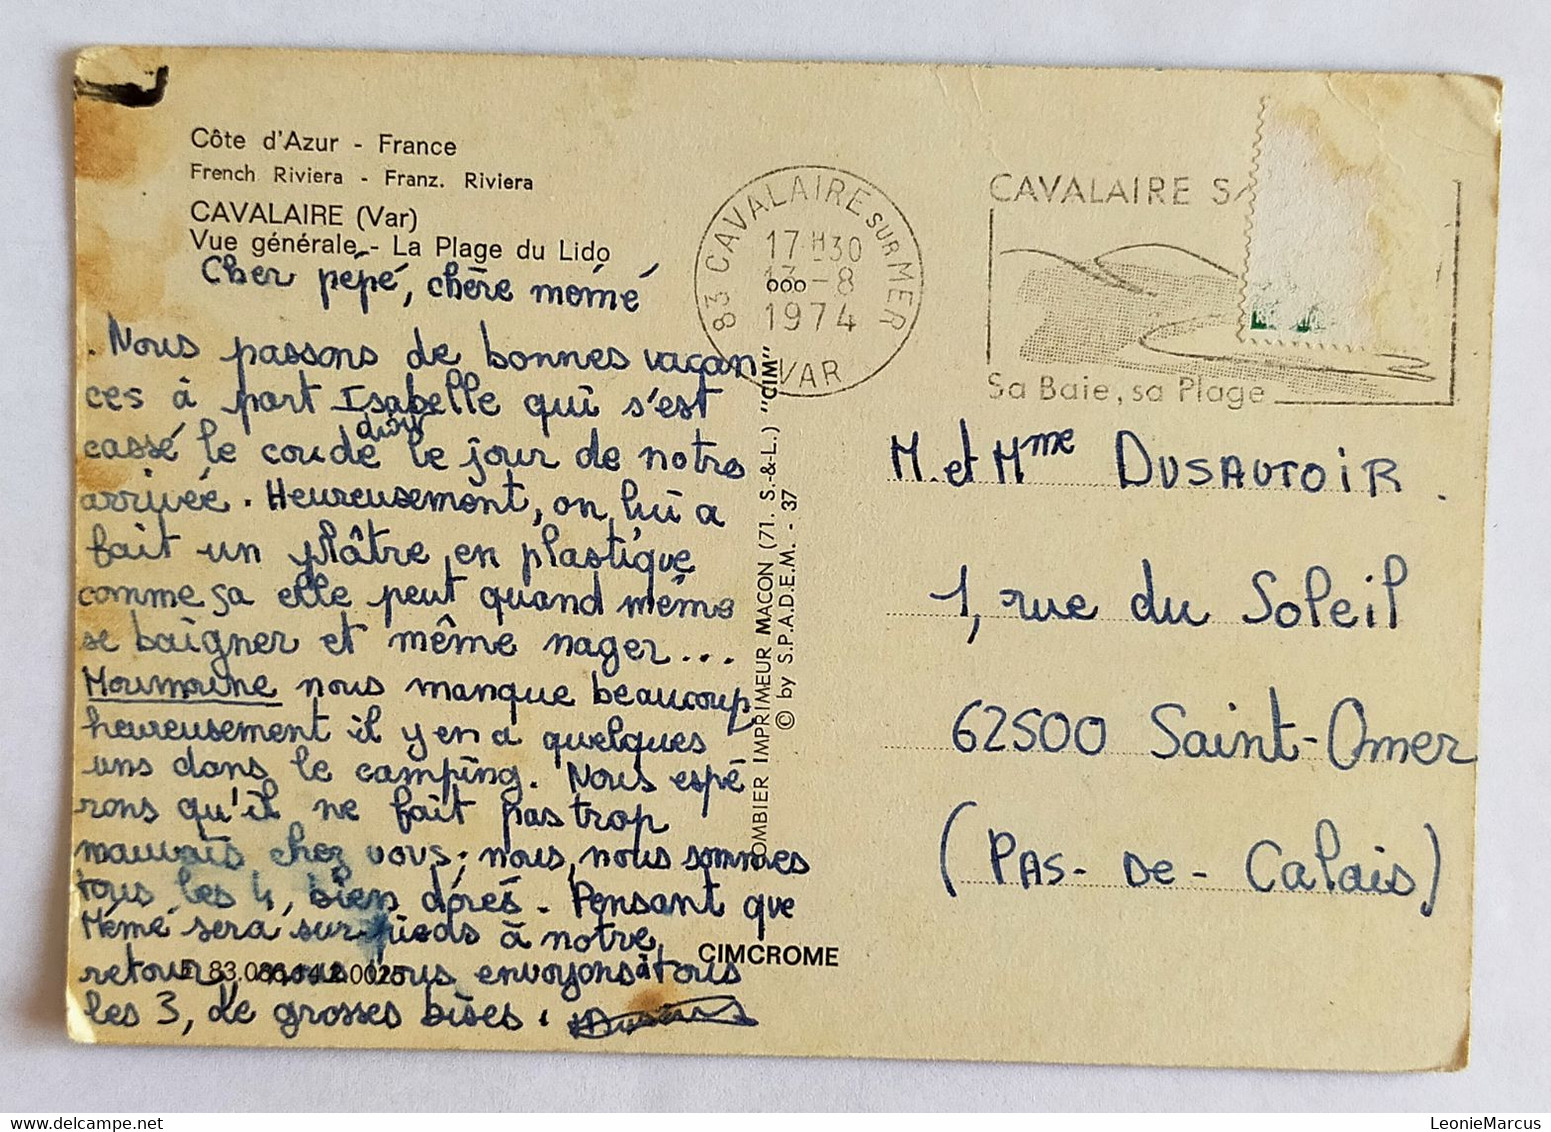 Côte d'Azur - France
French Riviera - Franz. Riviera
CAVALAIRE (Var)
Vue générale - La Plage du Lido
Cher pépé, chère mémé
. Nous passons de bonnes vacan
ces à part Isabelle qui s'est
cassé le coude le jour de notre
arrivée. Heureusement, on lui a
fait un plâtre en plastique
comme ça elle peut quand même
se baigner et même nager...
Moumoune nous manque beaucoup,
heureusement il y en a quelques
uns dans le camping. Nous espé
rons qu'il ne fait pas trop
mauvais chez vous; nous, nous sommes
tous les 4, bien dorés. Pensant que
Mémé sera sur pieds à notre
retour, nous vous envoyons à tous
les 3, de grosses bises.
CIMCROME
OMBIER IMPRIMEUR MACON (71. S.-&-L.) "CIM"
© by S.P.A.D.E.M. - 37
83 CAVALAIRE SUR MER
17H30
13-8
1974
VAR
CAVALAIRE
Sa Baie, sa Plage
M. et Mme DUSAUTOIR.
1, rue du Soleil
62500 Saint-Omer
(PAS-DE-Calais)
LeonieMarcus